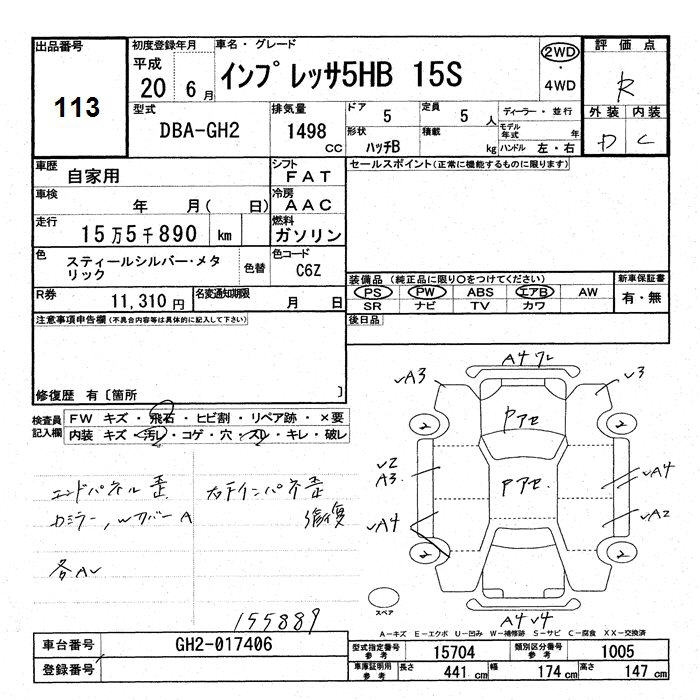 出品番号
113
初度登録年月
平成
20年 6月
車名・グレード
インプレッサ5HB 15S
2WD
・
4WD
評価点
R
外装 内装
D C
型式
DBA-GH2
排気量
1498 CC
ドア 5
形状 ハッチB
定員 5 人
積載 kg
ディーラー・並行
モデル年式 年
ハンドル 左・右
車歴
自家用
シフト
FAT
セールスポイント(正常に機能するものに限ります)
車検
年 月( 日)
冷房
AAC
走行
15万5千890 km
燃料
ガソリン
色
スティールシルバー・メタリック
色替
色コード
C6Z
装備品 (純正品に限り○をつけてください)
PS PW ABS エアB AW
SR ナビ TV カワ
新車保証書
有・無
R券
11,310円
名変通知期限
月 日
後日品
注意事項申告欄(不具合内容等は具体的に記入して下さい)
修復歴 有〔箇所 〕
検査員記入欄
FW キズ・飛石・ヒビ割・リペア跡・×要
内装 キズ・汚レ・コゲ・穴・スレ・キレ・破レ
エンドパネル歪
右下インパネ歪
修復
カミラー,Wカバー A
各AV
155889
A4 ワレ
√A3
√3
Pアセ
2
2
Pアセ.
√2
A3.
√A4
√A4
√A2
2
2
スペア
A4 √4
A-キズ E-エクボ U-凹み W-補修跡 S-サビ C-腐食 XX-交換済
車台番号
GH2-017406
登録番号
型式指定番号 参考
15704
類別区分番号 参考
1005
車庫証明用 参考
長さ 441 cm
幅 174 cm
高さ 147 cm